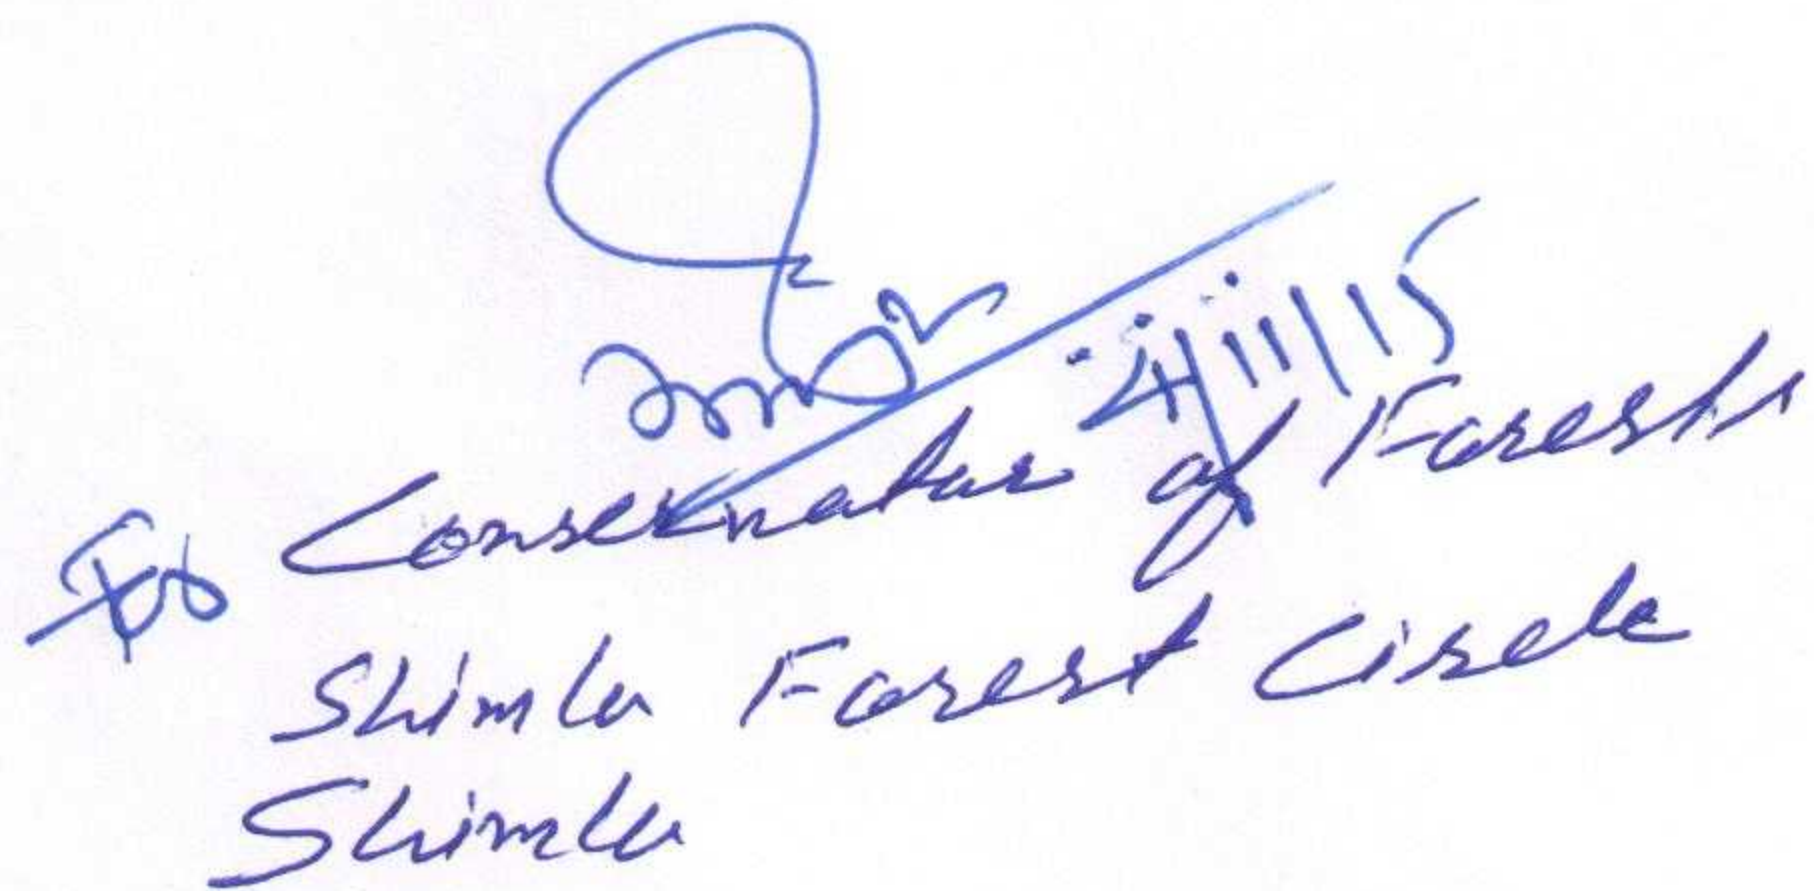 24/11/15
Conservator of Forests
Shimla Forest Circle
Shimla